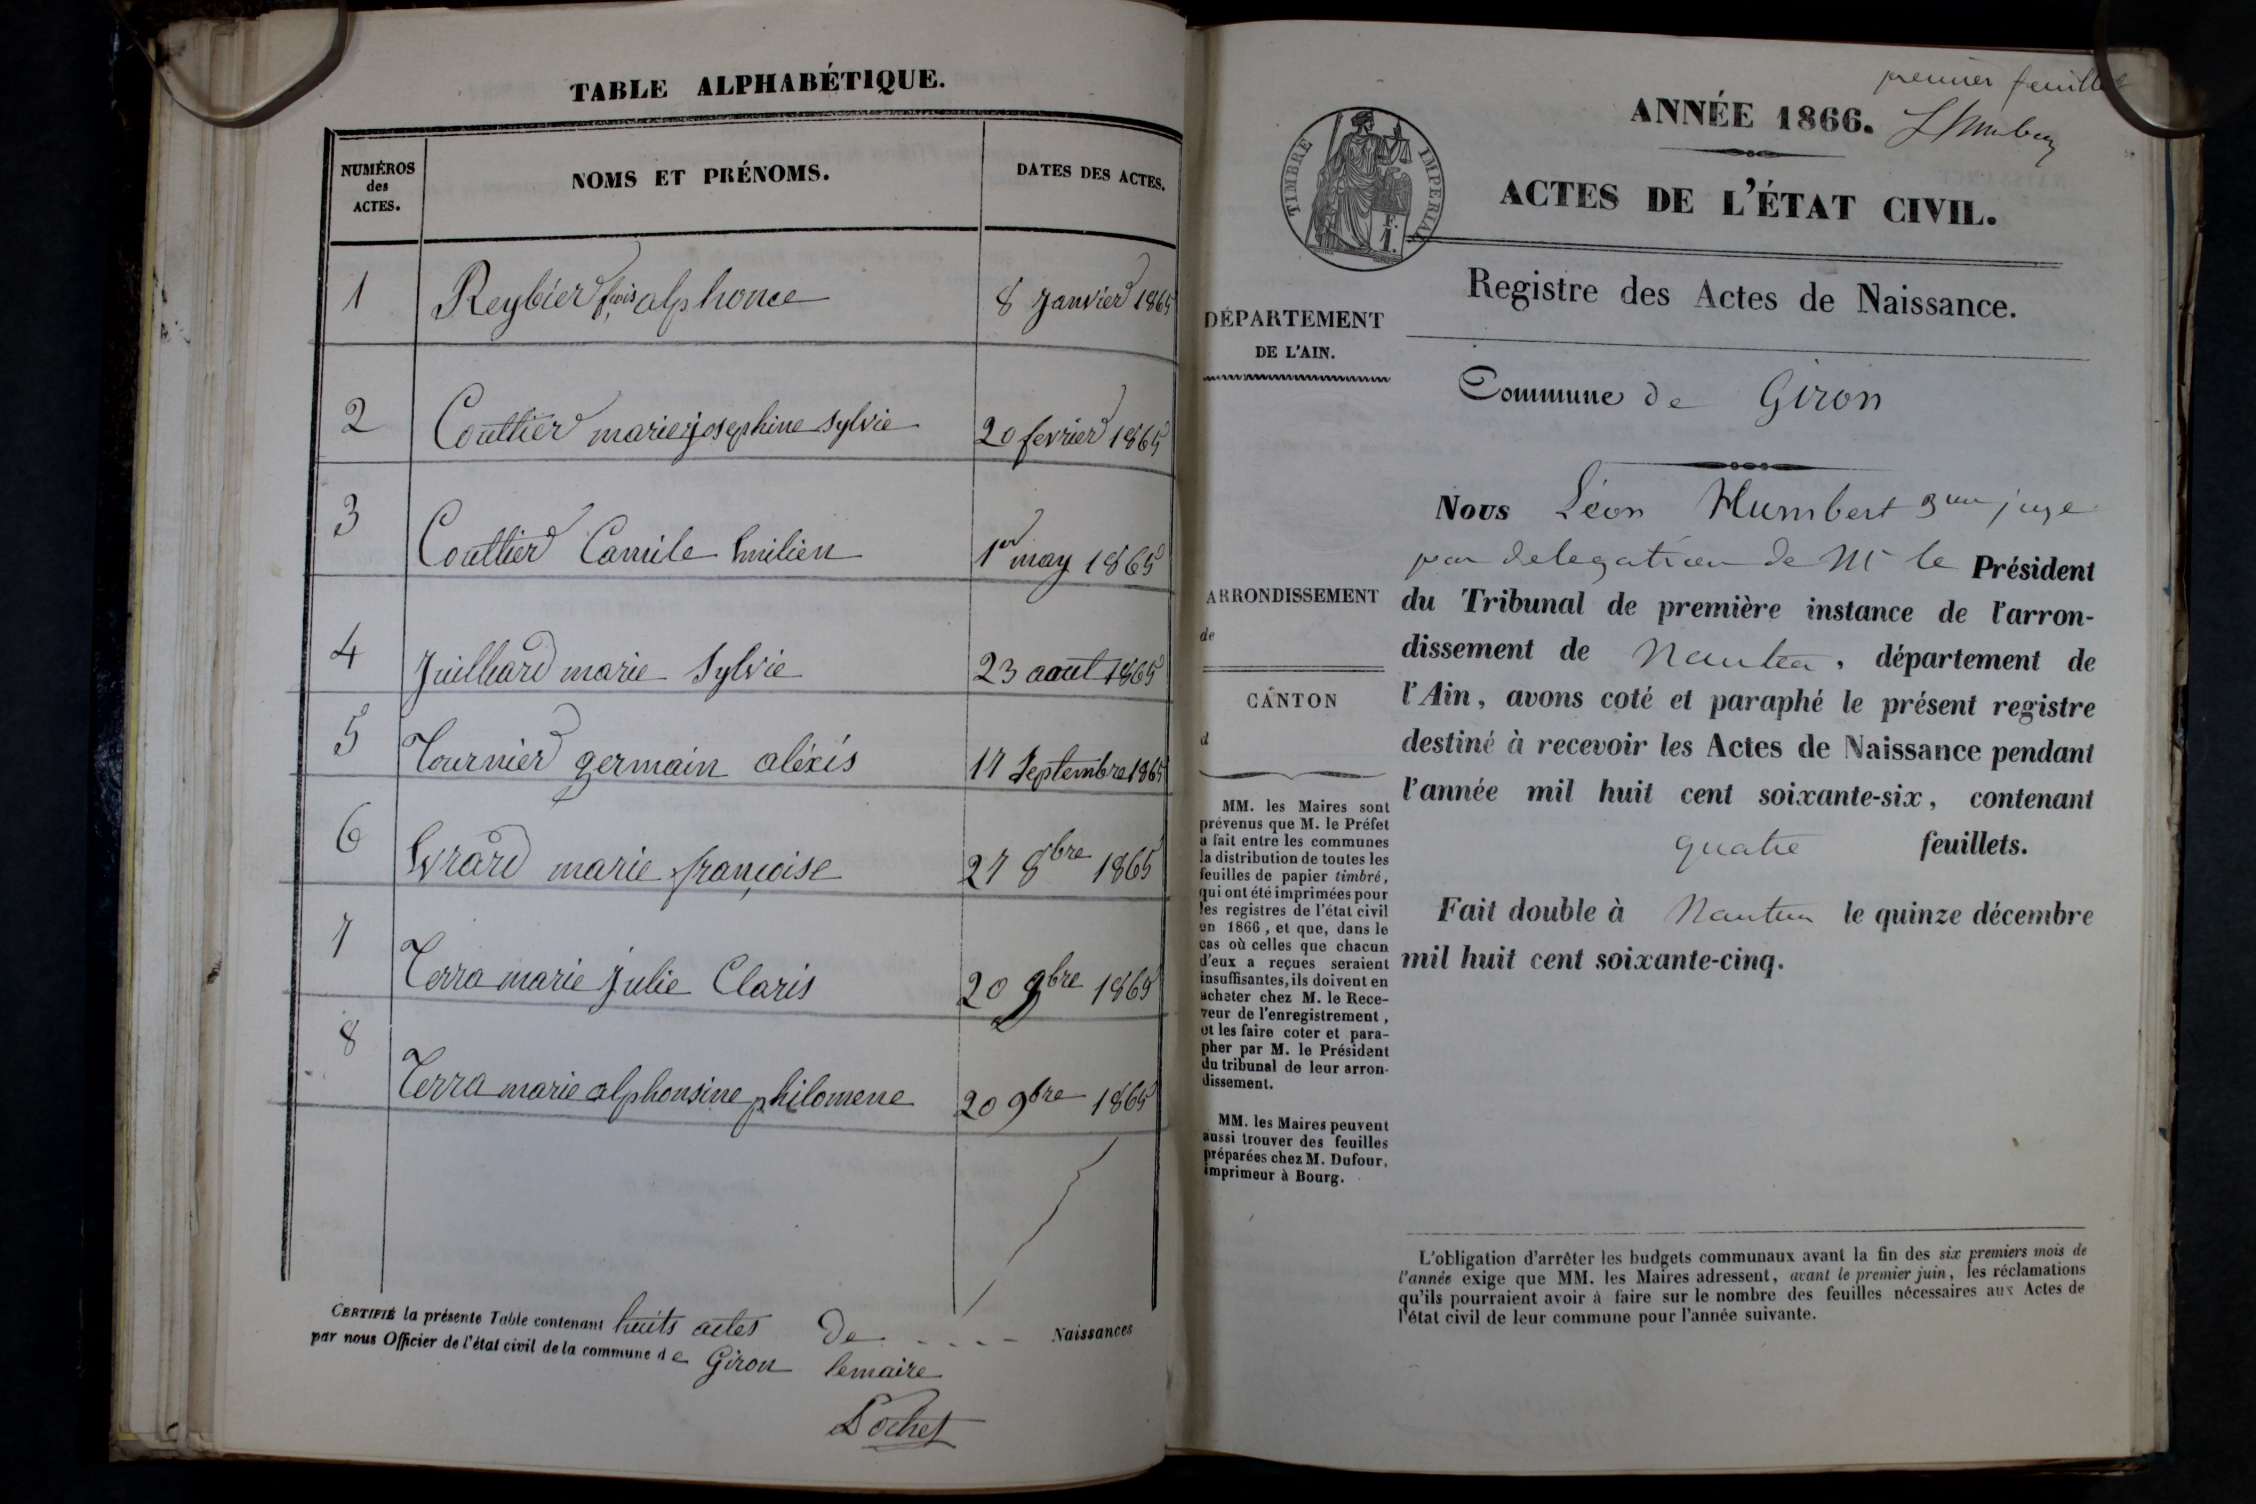 TABLE ALPHABÉTIQUE.
NUMÉROS
des
ACTES.
NOMS ET PRÉNOMS.
DATES DES ACTES.
1 Reybier fçois alphonce 8 Janvier 1865
2 Coultier marie josephine sylvie 20 fevrier 1865
3 Coultier Camile Emilien 1er may 1865
4 Juilliard marie Sylvie 23 aout 1865
5 Tournier germain aléxis 17 Septembre 1865
6 Evrard marie françoise 27 8bre 1865
7 Terra marie Julie Claris 20 9bre 1865
8 Terra marie alphonsine philomene 20 9bre 1865
CERTIFIÉ la présente Table contenant huits actes De Naissances
par nous Officier de l'état civil de la commune de Giron lemaire
Pochet
premier feuillet
ANNÉE 1866.
LHumbert
TIMBRE IMPERIAL
ACTES DE L'ÉTAT CIVIL.
Registre des Actes de Naissance.
DÉPARTEMENT
DE L'AIN.
Commune de Giron
ARRONDISSEMENT
de
CANTON
d
MM. les Maires sont
prévenus que M. le Préfet
a fait entre les communes
la distribution de toutes les
feuilles de papier timbré,
qui ont été imprimées pour
les registres de l'état civil
en 1866, et que, dans le
cas où celles que chacun
d'eux a reçues seraient
insuffisantes, ils doivent en
acheter chez M. le Rece-
veur de l'enregistrement,
et les faire coter et para-
pher par M. le Président
du tribunal de leur arron-
dissement.
MM. les Maires peuvent
aussi trouver des feuilles
préparées chez M. Dufour,
imprimeur à Bourg.
Nous Léon Humbert juge
par delegation de Mr le Président
du Tribunal de première instance de l'arron-
dissement de Nantua, département de
l'Ain, avons coté et paraphé le présent registre
destiné à recevoir les Actes de Naissance pendant
l'année mil huit cent soixante-six, contenant
quatre feuillets.
Fait double à Nantua le quinze décembre
mil huit cent soixante-cinq.
L'obligation d'arrêter les budgets communaux avant la fin des six premiers mois de
l'année exige que MM. les Maires adressent, avant le premier juin, les réclamations
qu'ils pourraient avoir à faire sur le nombre des feuilles nécessaires aux Actes de
l'état civil de leur commune pour l'année suivante.